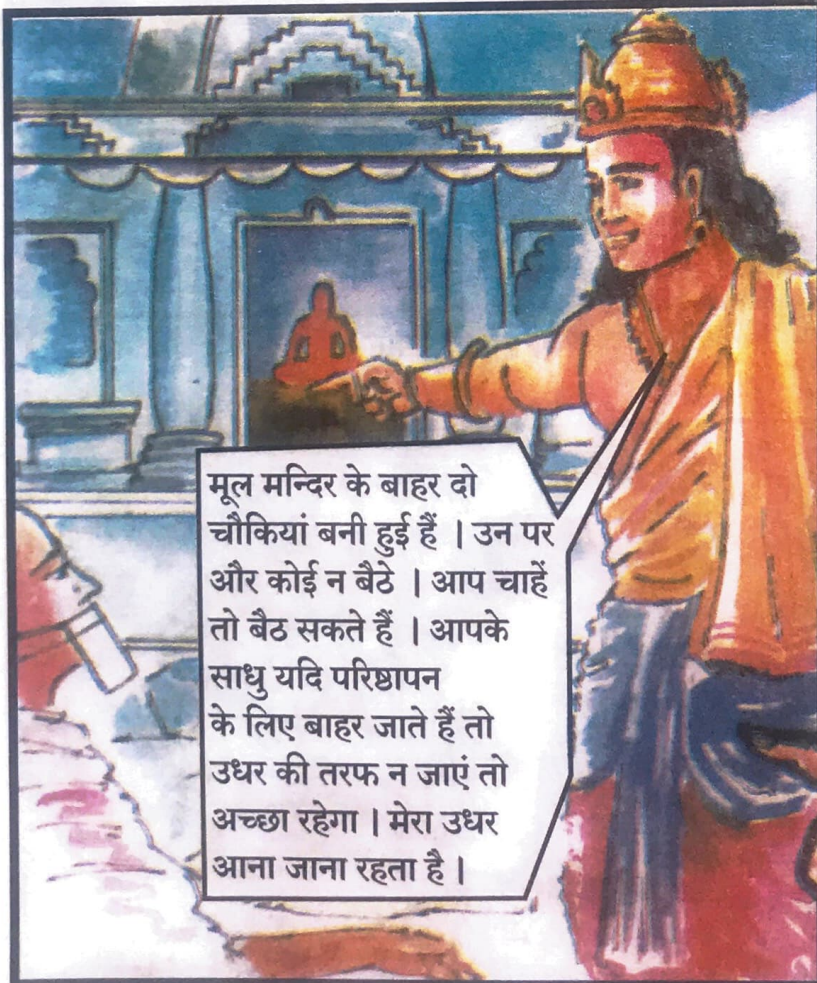 मूल मन्दिर के बाहर दो
चौकियां बनी हुई हैं । उन पर
और कोई न बैठे । आप चाहें
तो बैठ सकते हैं । आपके
साधु यदि परिष्ठापन
के लिए बाहर जाते हैं तो
उधर की तरफ न जाएं तो
अच्छा रहेगा । मेरा उधर
आना जाना रहता है ।